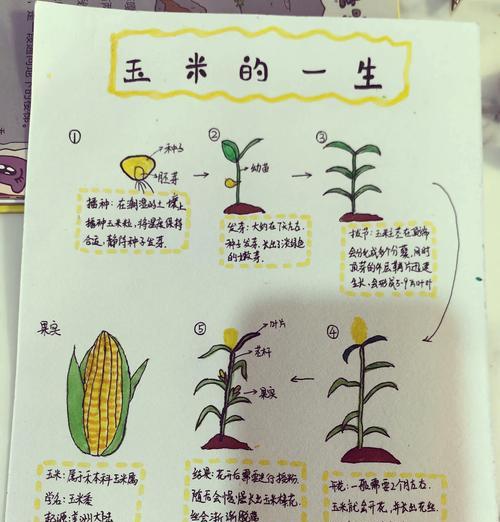 玉米的一生
①
种子
胚芽
播种：在潮湿的土壤上
播种玉米粒，将温度保持
合适，静待种子发芽。
②
幼苗
发芽：大约在7天左右
种子发芽，长出了淡绿色
的嫩芽。
③
拔节：玉米茎在顶端
会分化成多个分蘖，同时
生长，会形成5-9片叶叶
④
一般需要2个月左右，
玉米就会开花，并长出花丝
⑤
叶片
茎秆
果实
结果：花开后需要进行授粉，
随后会慢慢长出玉米棒花，
果实
玉米：属于禾本科玉米属
学名：玉米黍
起源：美洲大陆